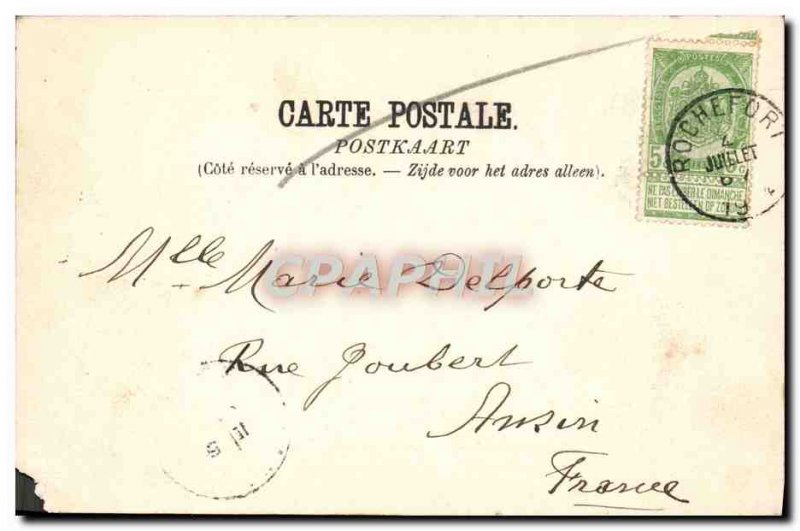 CARTE POSTALE.
POSTKAART
(Côté réservé à l'adresse. — Zijde voor het adres alleen).
POSTES
5
NE PAS LIVRER LE DIMANCHE
NIET BESTELLEN OP ZONDAG
ROCHEFORT
4
JUILLET
19
Mlle Marie Delporte
CPAPHIL
Rue Joubert
Anzin
France